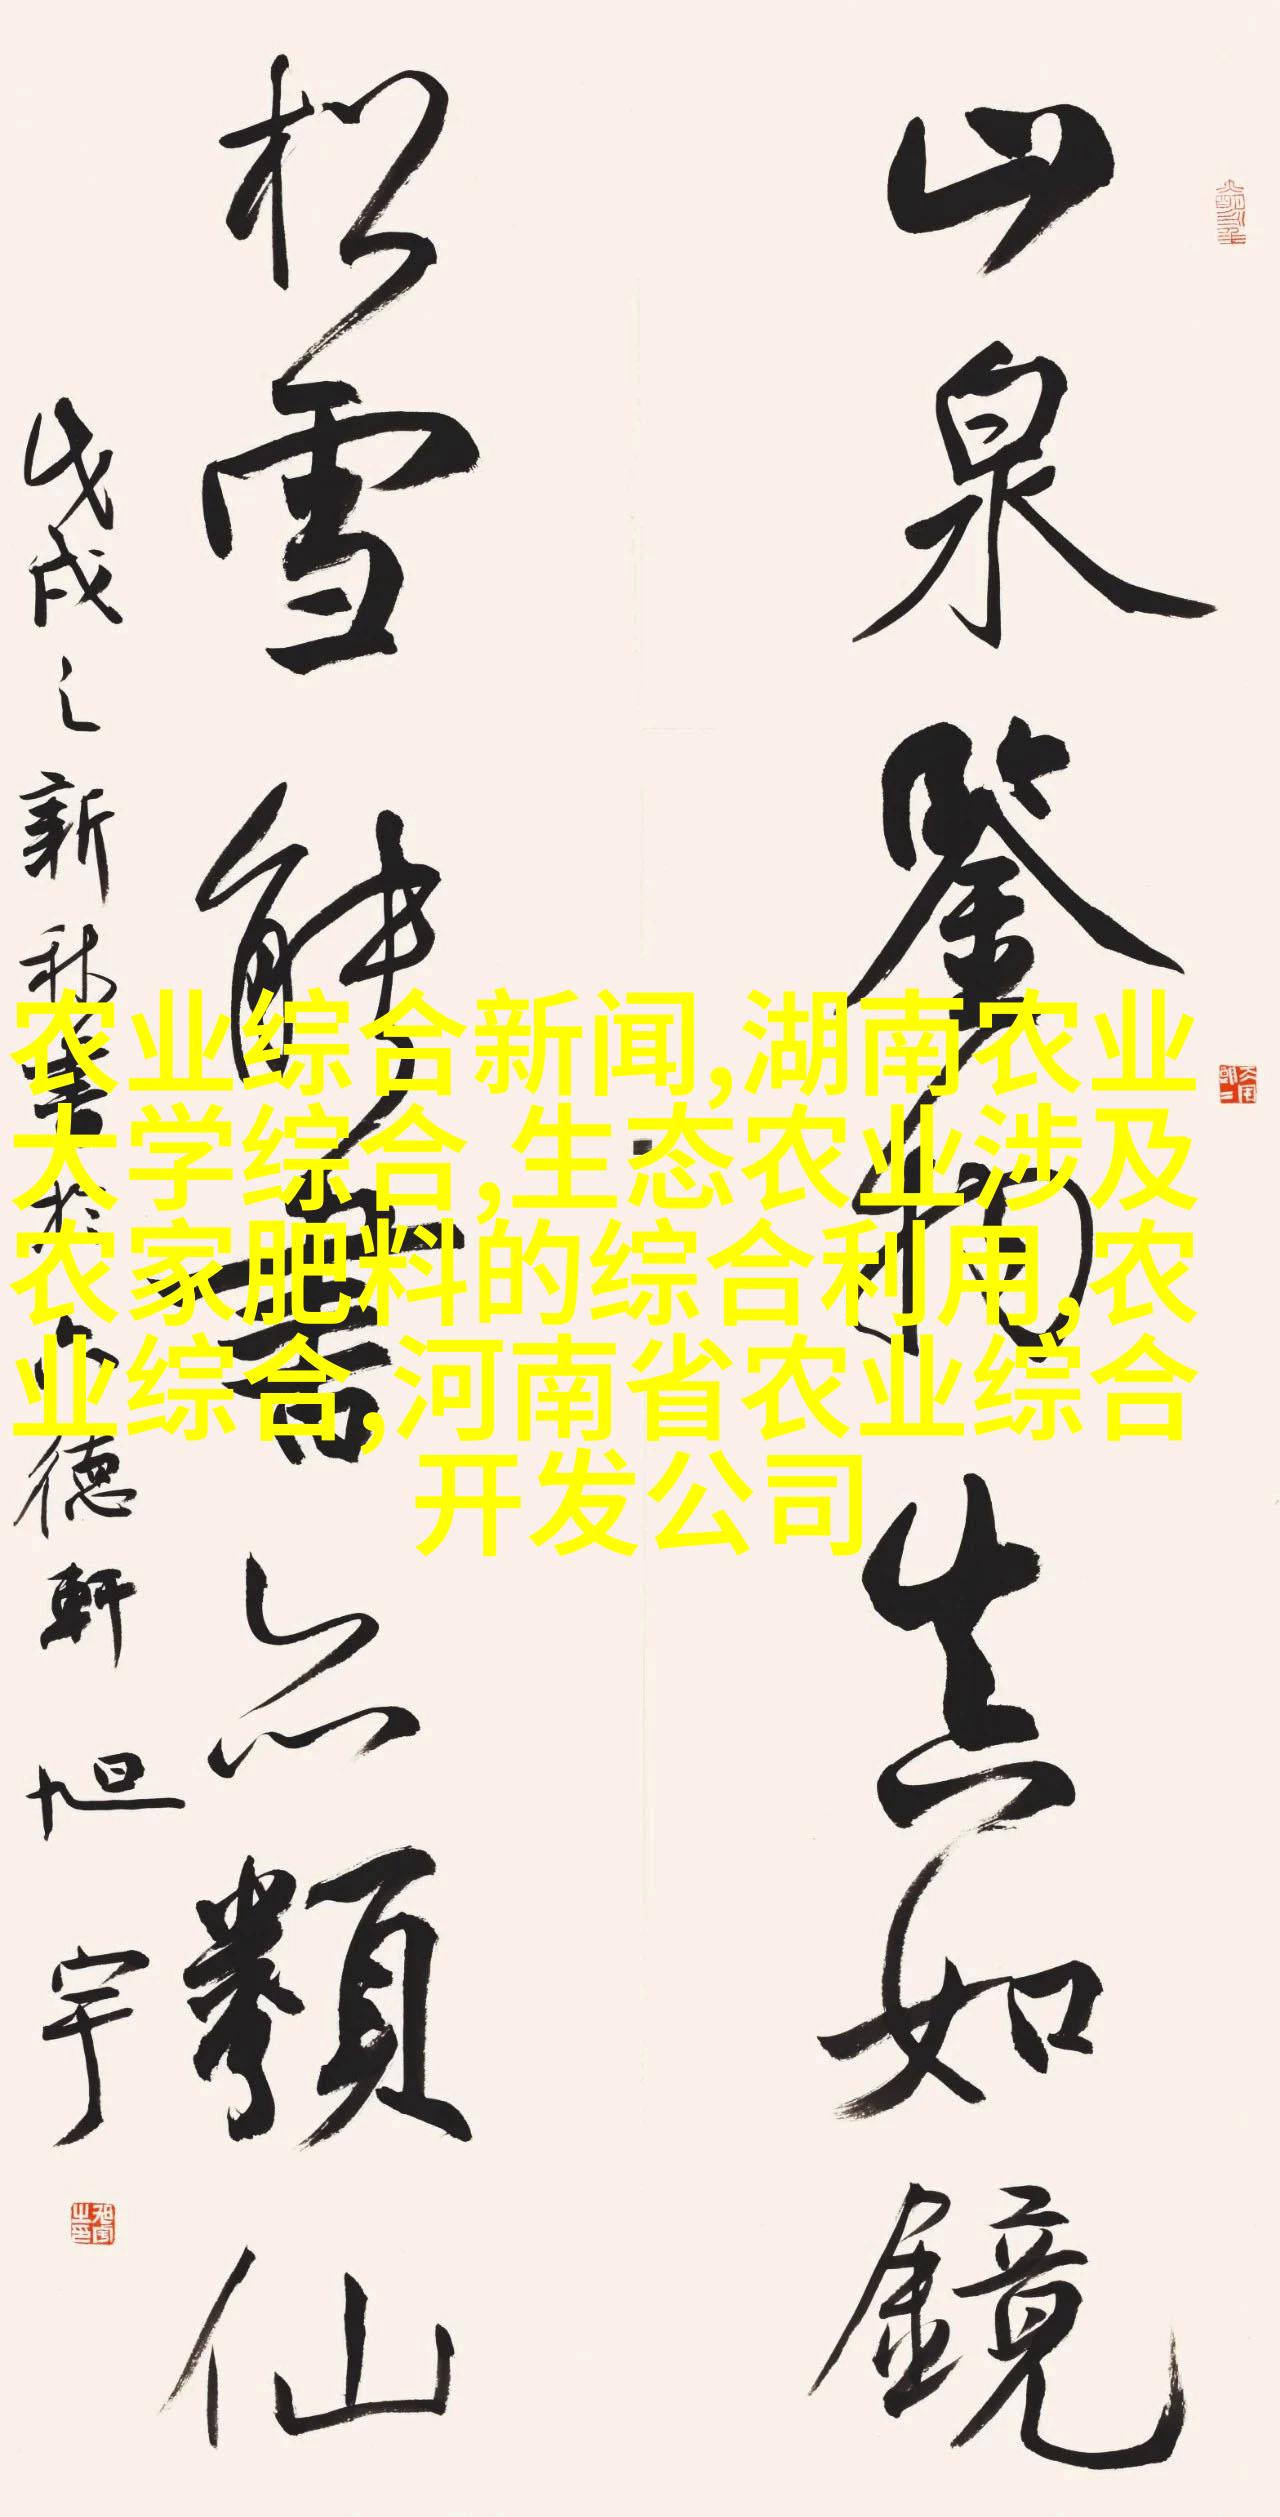 山泉鑒物真如鏡
松雪能書亦類仙
戊戌之新秋書於
德軒
旭宇
农业综合新闻,湖南农业
大学综合,生态农业涉及
农家肥料的综合利用,农
业综合,河南省农业综合
开发公司